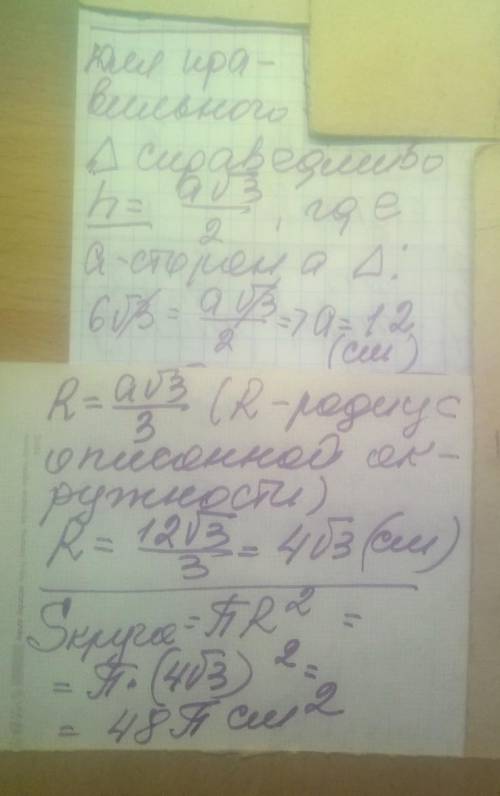 Для пра-
вильного
Δ справедливо
h = a√3/2, где
a-сторона Δ:
6√3 = a√3/2 => a = 12
(см)
R = a√3/3 (R-радиус
описанной ок-
ружности)
R = 12√3/3 = 4√3 (см)
Sкруга = πR² =
= π·(4√3)² =
= 48π см²